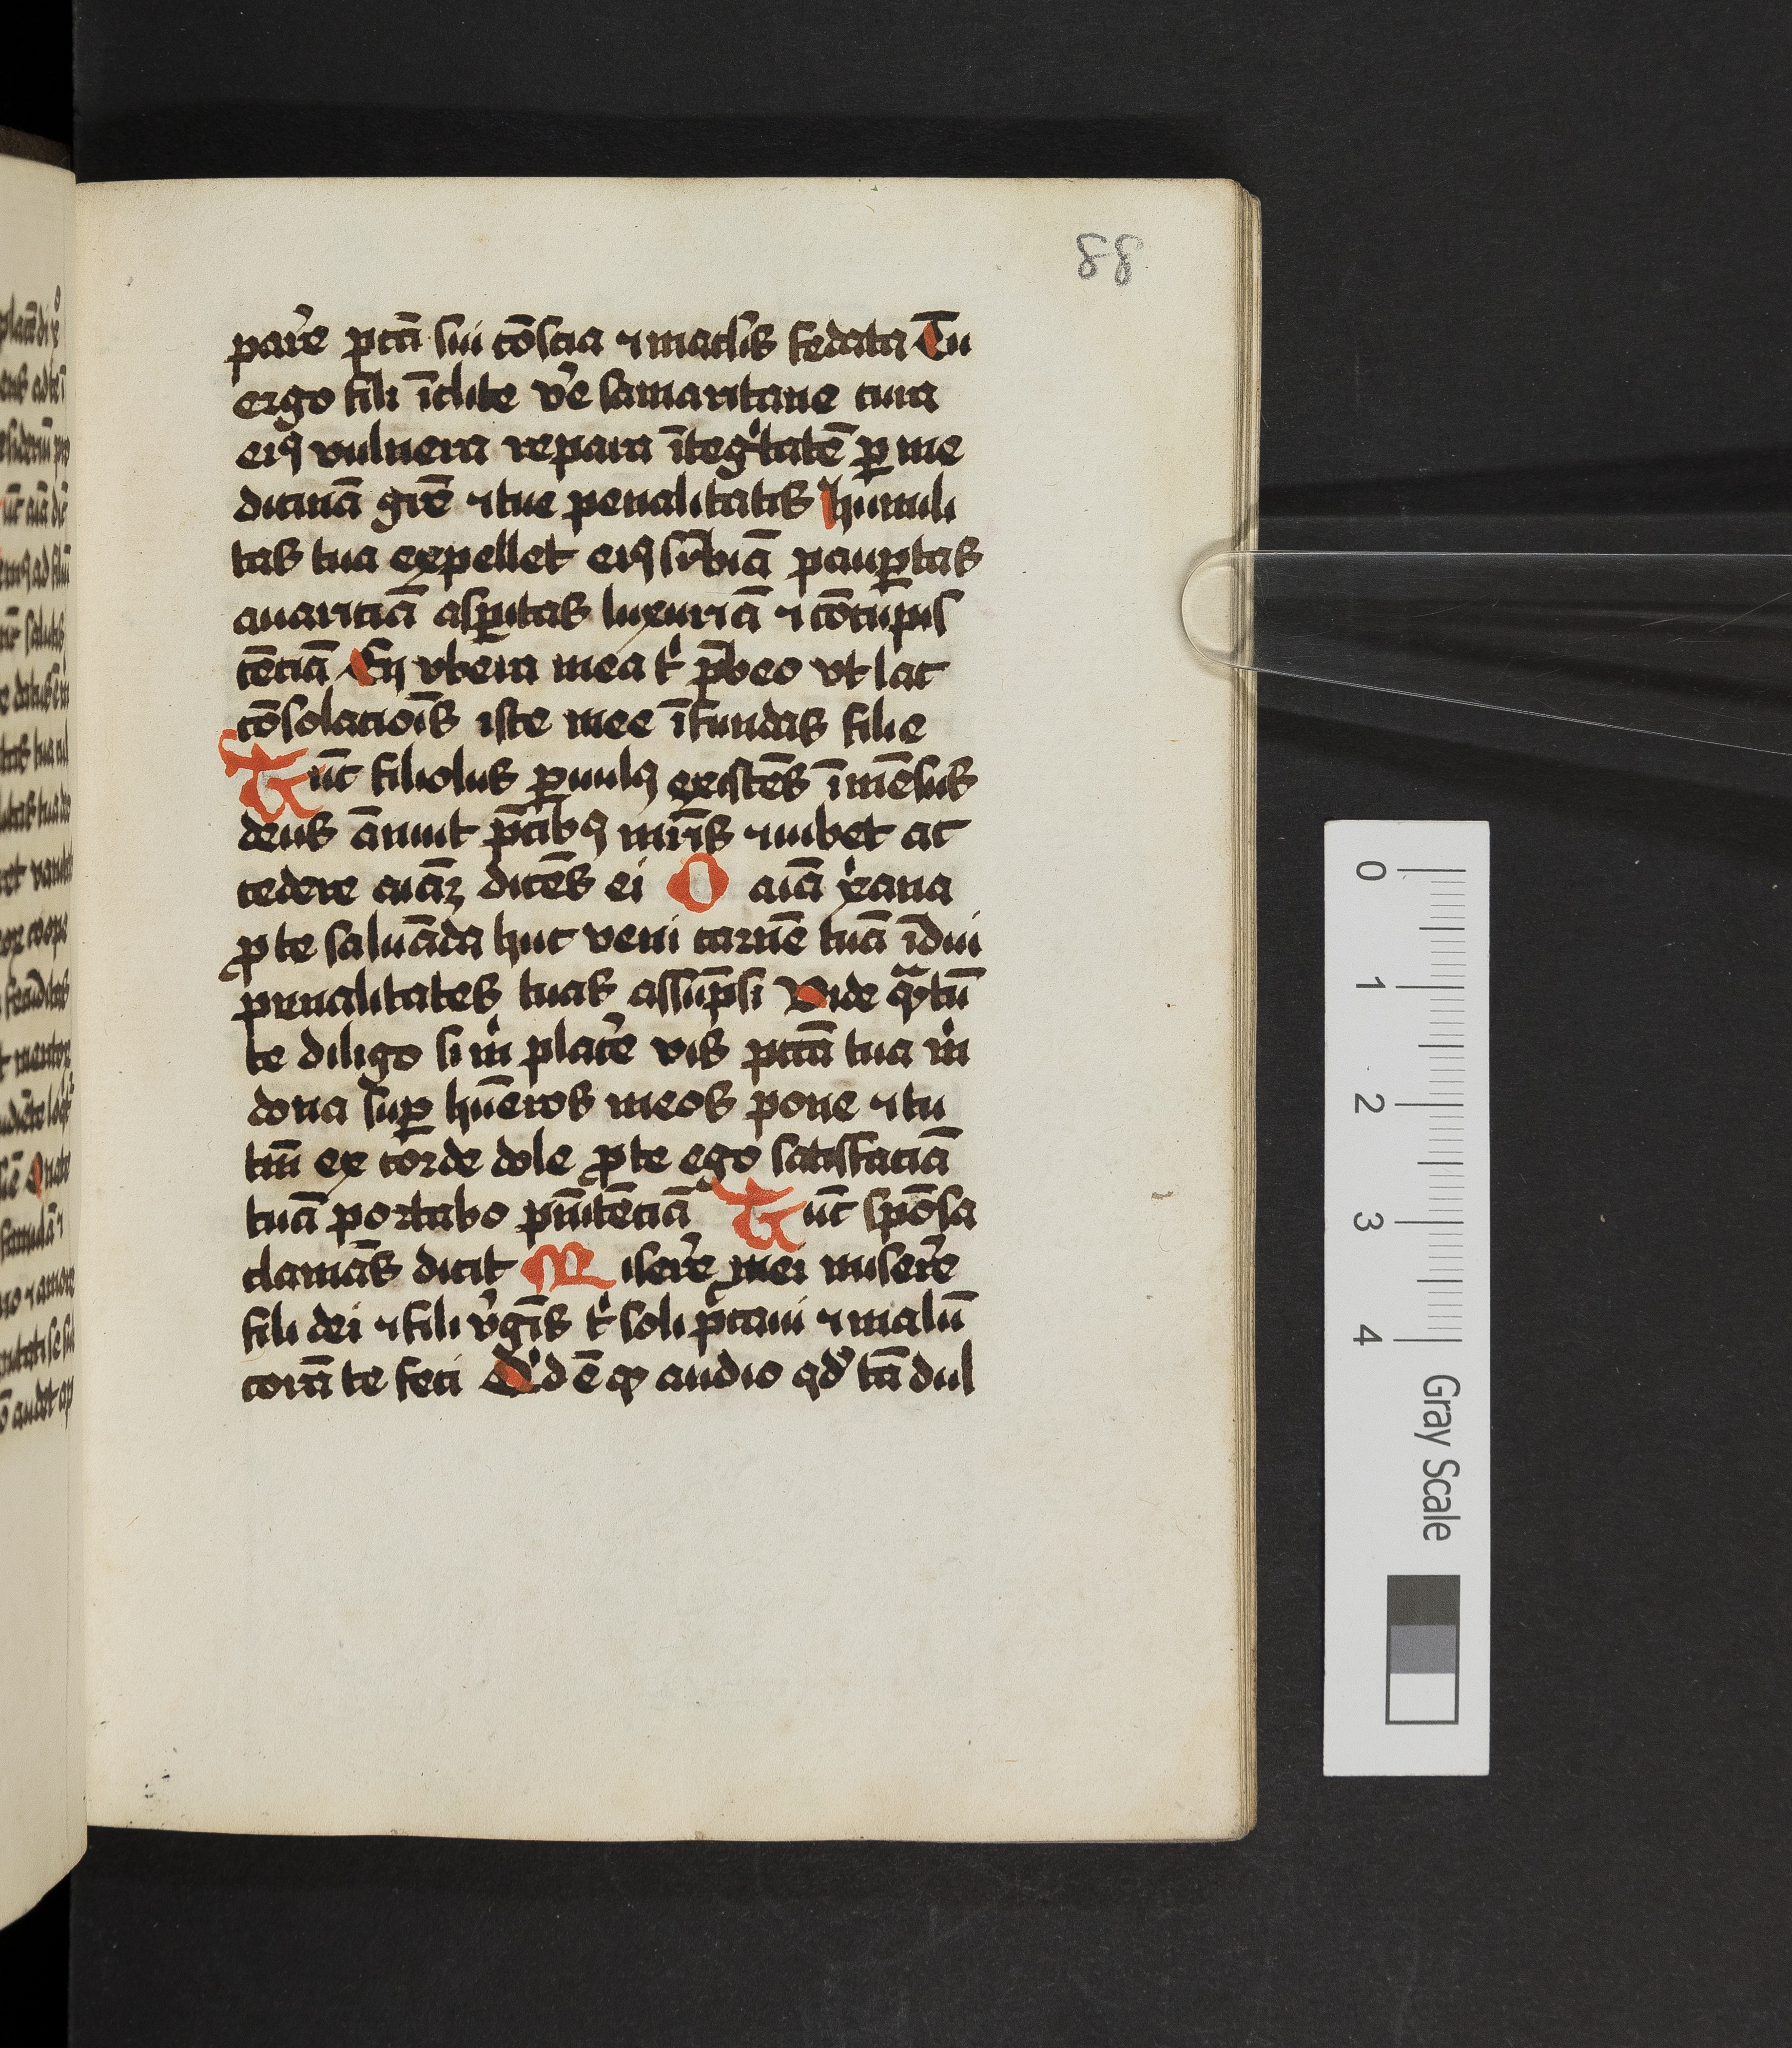 88
par̾e pctā sui cōscia ⁊ maclis fedata Tu
ergo fili īclite v̾e samaritane cura
eiꝯ vulnera repara īteg̍tatē ꝑ me
dicinā gr̄e ⁊ tue penalitatis humili
tas tua expellet eiꝯ suꝑbiā pauꝑtas
auariciā asꝑitas luxuriā ⁊ cōcupis
cēciā En vbera mea t̍ p̄beo vt lac
cōsolacōis iste mee īfundas filie
Tūc filiolus ꝑuulꝯ existēs īmēsus
deus ānuit p̄cibꝯ mr̄is ⁊ iubet ac
cedere aīaꝫ dicēs ei O aīa xp̄ana
ꝓ te saluāda huc veni carnē tuā īdui
penalitates tuas assūpsi Vide qᷓtū
te diligo si m̍ plac̾e vis pctā tua m̍
dona suꝑ hūeros meos pone ⁊ tu
tm̄ ex corde dole ꝓ te ego satisfaciā
tuā portabo pn̄itēciā Tūc spōsa
clamās dicit Miser̾e mei miser̾e
fili dei ⁊ fili v̾gīs t̍ soli pctaui ⁊ malū
corā te feci Q̍d ē ꝙ audio qd̾ tā dul
0
1
2
3
4
Gray Scale